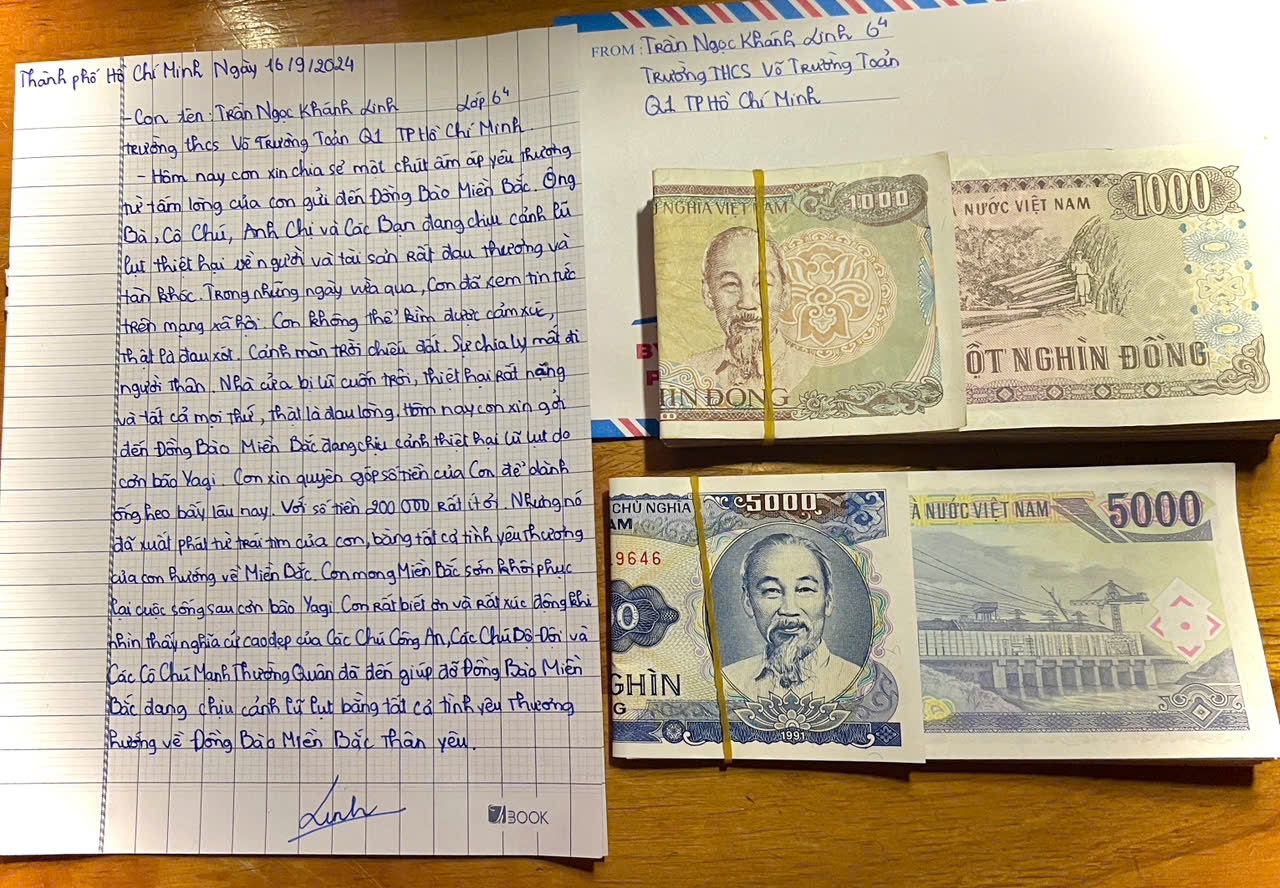 Thành phố Hồ Chí Minh Ngày 16/9/2024
- Con tên: Trần Ngọc Khánh Linh Lớp 6⁴
trường thcs Võ Trường Toản Q1 TP Hồ Chí Minh.
- Hôm nay con xin chia sẻ một chút ấm áp yêu thương
từ tấm lòng của con gửi đến Đồng Bào Miền Bắc. Ông
Bà, Cô Chú, Anh Chị và Các Bạn đang chịu cảnh lũ
lụt thiệt hại về người và tài sản rất đau thương và
tàn khốc. Trong những ngày vừa qua, Con đã xem tin tức
trên mạng xã hội. Con không thể kìm được cảm xúc,
thật là đau xót. Cảnh màn trời chiếu đất. Sự chia ly mất đi
người thân. Nhà cửa bị lũ cuốn trôi, thiệt hại rất nặng
và tất cả mọi thứ, thật là đau lòng. Hôm nay con xin gởi
đến Đồng Bào Miền Bắc đang chịu cảnh thiệt hại lũ lụt do
cơn bão Yagi. Con xin quyên góp số tiền của Con để dành
ống heo bấy lâu nay. Với số tiền 200 000 rất ít ỏi. Nhưng nó
đã xuất phát từ trái tim của con, bằng tất cả tình yêu thương
của con hướng về Miền Bắc. Con mong Miền Bắc sớm khôi phục
lại cuộc sống sau cơn bão Yagi. Con rất biết ơn và rất xúc động khi
nhìn thấy nghĩa cử cao đẹp của Các Chú Công An, Các Chú Bộ-Đội và
Các Cô Chú Mạnh Thường Quân đã đến giúp đỡ Đồng Bào Miền
Bắc đang chịu cảnh lũ lụt bằng tất cả tình yêu thương
hướng về Đồng Bào Miền Bắc thân yêu.
Linh
BOOK
FROM: Trần Ngọc Khánh Linh 6⁴
Trường THCS Võ Trường Toản
Q1 TP Hồ Chí Minh
NGHĨA VIỆT NAM 1000
NƯỚC VIỆT NAM 1000
ÌN ĐỒNG
ỘT NGHÌN ĐỒNG
CHỦ NGHĨA 5000
AM
9646
0
GHÌN
G
1991
A NƯỚC VIỆT NAM 5000